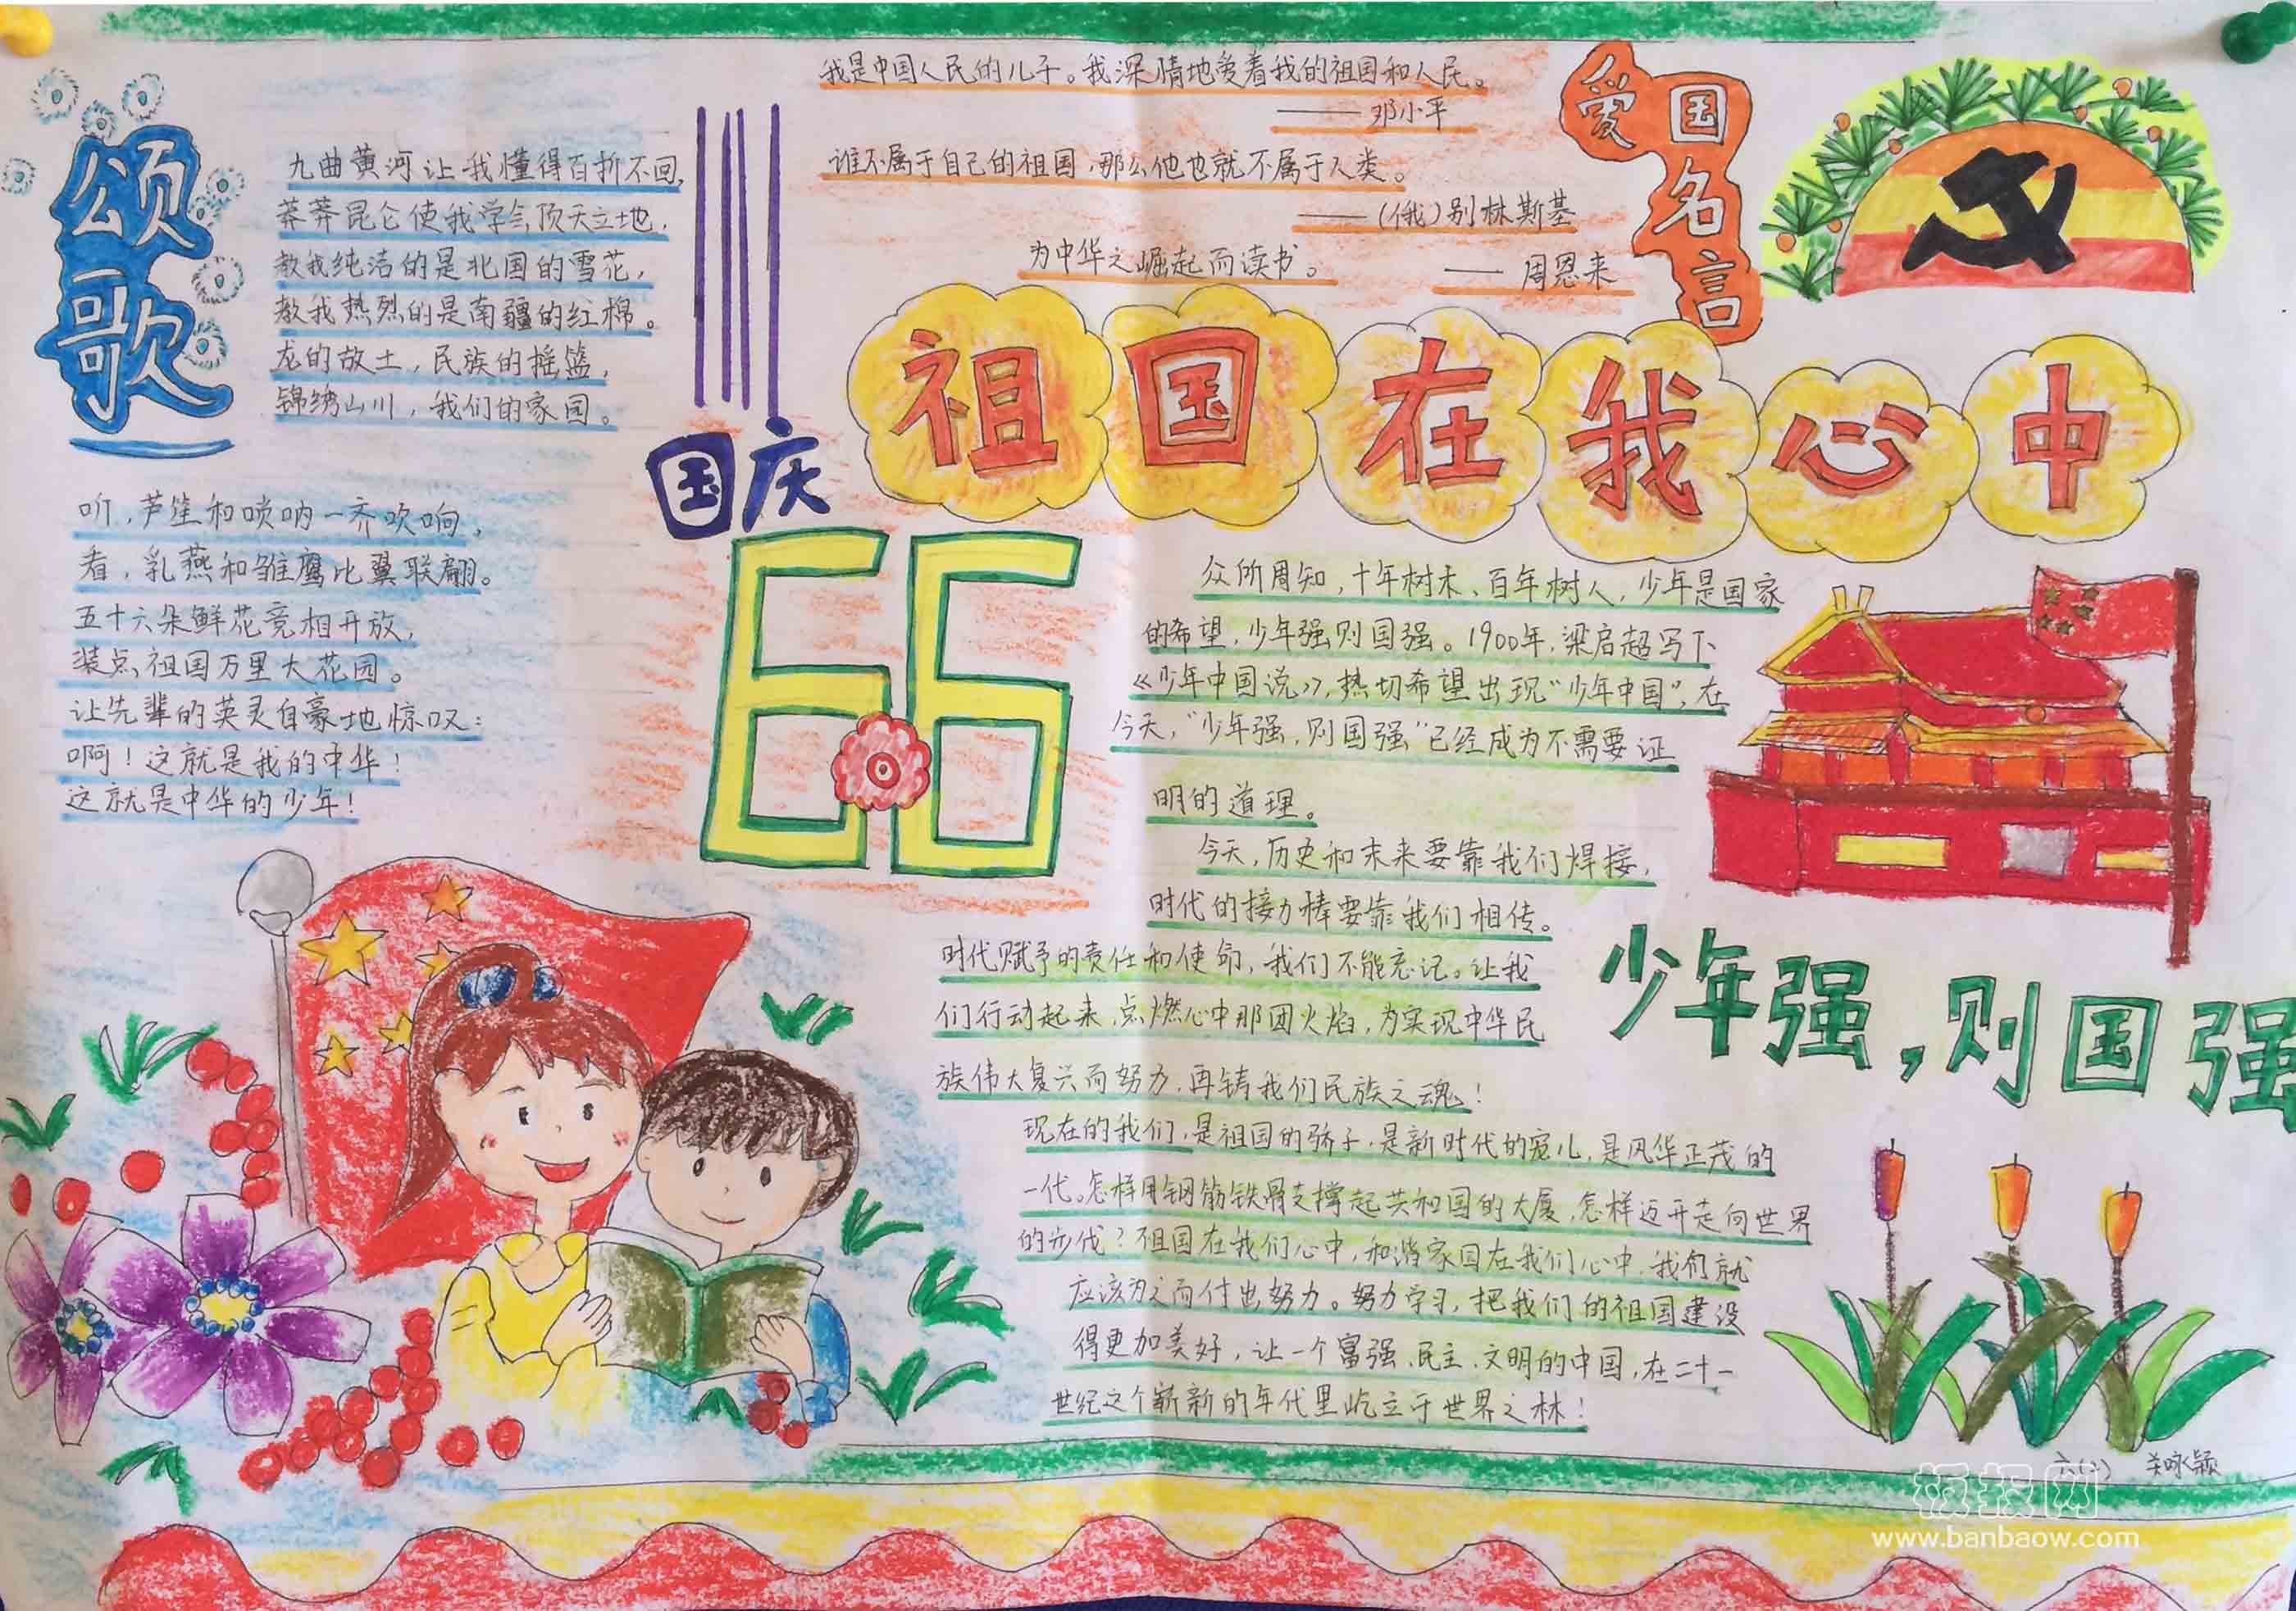 颂歌
九曲黄河让我懂得百折不回,
莽莽昆仑使我学会顶天立地,
教我纯洁的是北国的雪花,
教我热烈的是南疆的红棉。
龙的故土,民族的摇篮,
锦绣山川,我们的家园。
听,芦笙和唢呐一齐吹响,
看,乳燕和雏鹰比翼联翩。
五十六朵鲜花竞相开放,
装点祖国万里大花园。
让先辈的英灵自豪地惊叹:
啊!这就是我的中华!
这就是中华的少年!
国庆
66
我是中国人民的儿子。我深情地爱着我的祖国和人民。
—— 邓小平
谁不属于自己的祖国,那么他也就不属于人类。
——(俄)别林斯基
为中华之崛起而读书。 —— 周恩来
爱国名言
祖国在我心中
众所周知,十年树木、百年树人,少年是国家
的希望,少年强则国强。1900年,梁启超写下
《少年中国说》,热切希望出现“少年中国”,在
今天,“少年强,则国强”已经成为不需要证
明的道理。
今天,历史和未来要靠我们焊接,
时代的接力棒要靠我们相传。
时代赋予的责任和使命,我们不能忘记。让我
们行动起来,点燃心中那团火焰,为实现中华民
族伟大复兴而努力,再铸我们民族之魂!
现在的我们,是祖国的骄子,是新时代的宠儿,是风华正茂的
一代。怎样用钢筋铁骨支撑起共和国的大厦,怎样迈开走向世界
的步伐?祖国在我们心中,和谐家园在我们心中,我们就
应该为之而付出努力。努力学习,把我们的祖国建设
得更加美好,让一个富强、民主、文明的中国,在二十一
世纪这个崭新的年代里屹立于世界之林!
少年强,则国强
关咏颖
板报网
www.banbaow.com